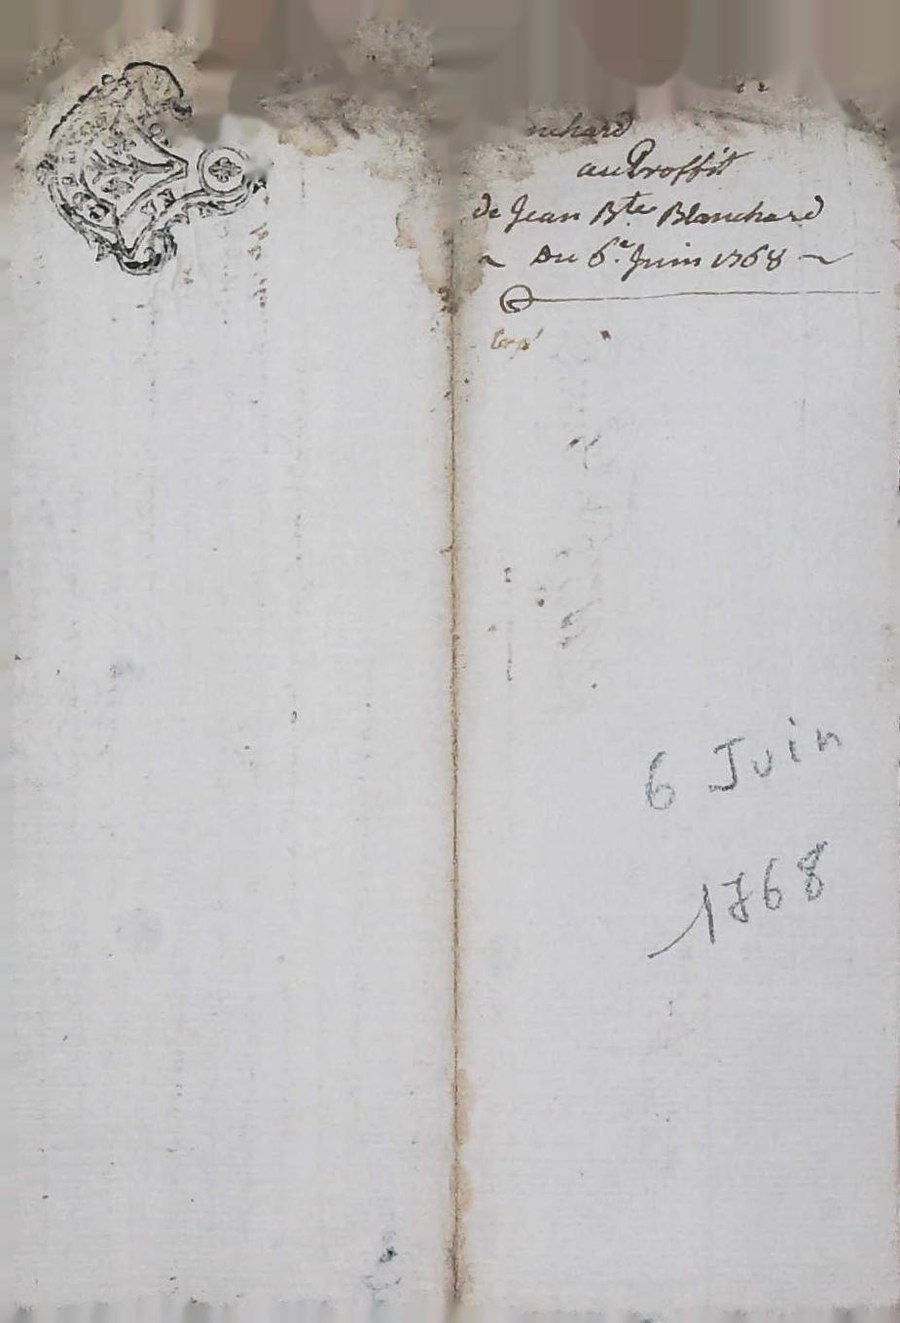 nchard
au Proffit
de Jean Bte Blanchard
Du 6e Juin 1768
6 Juin
1768